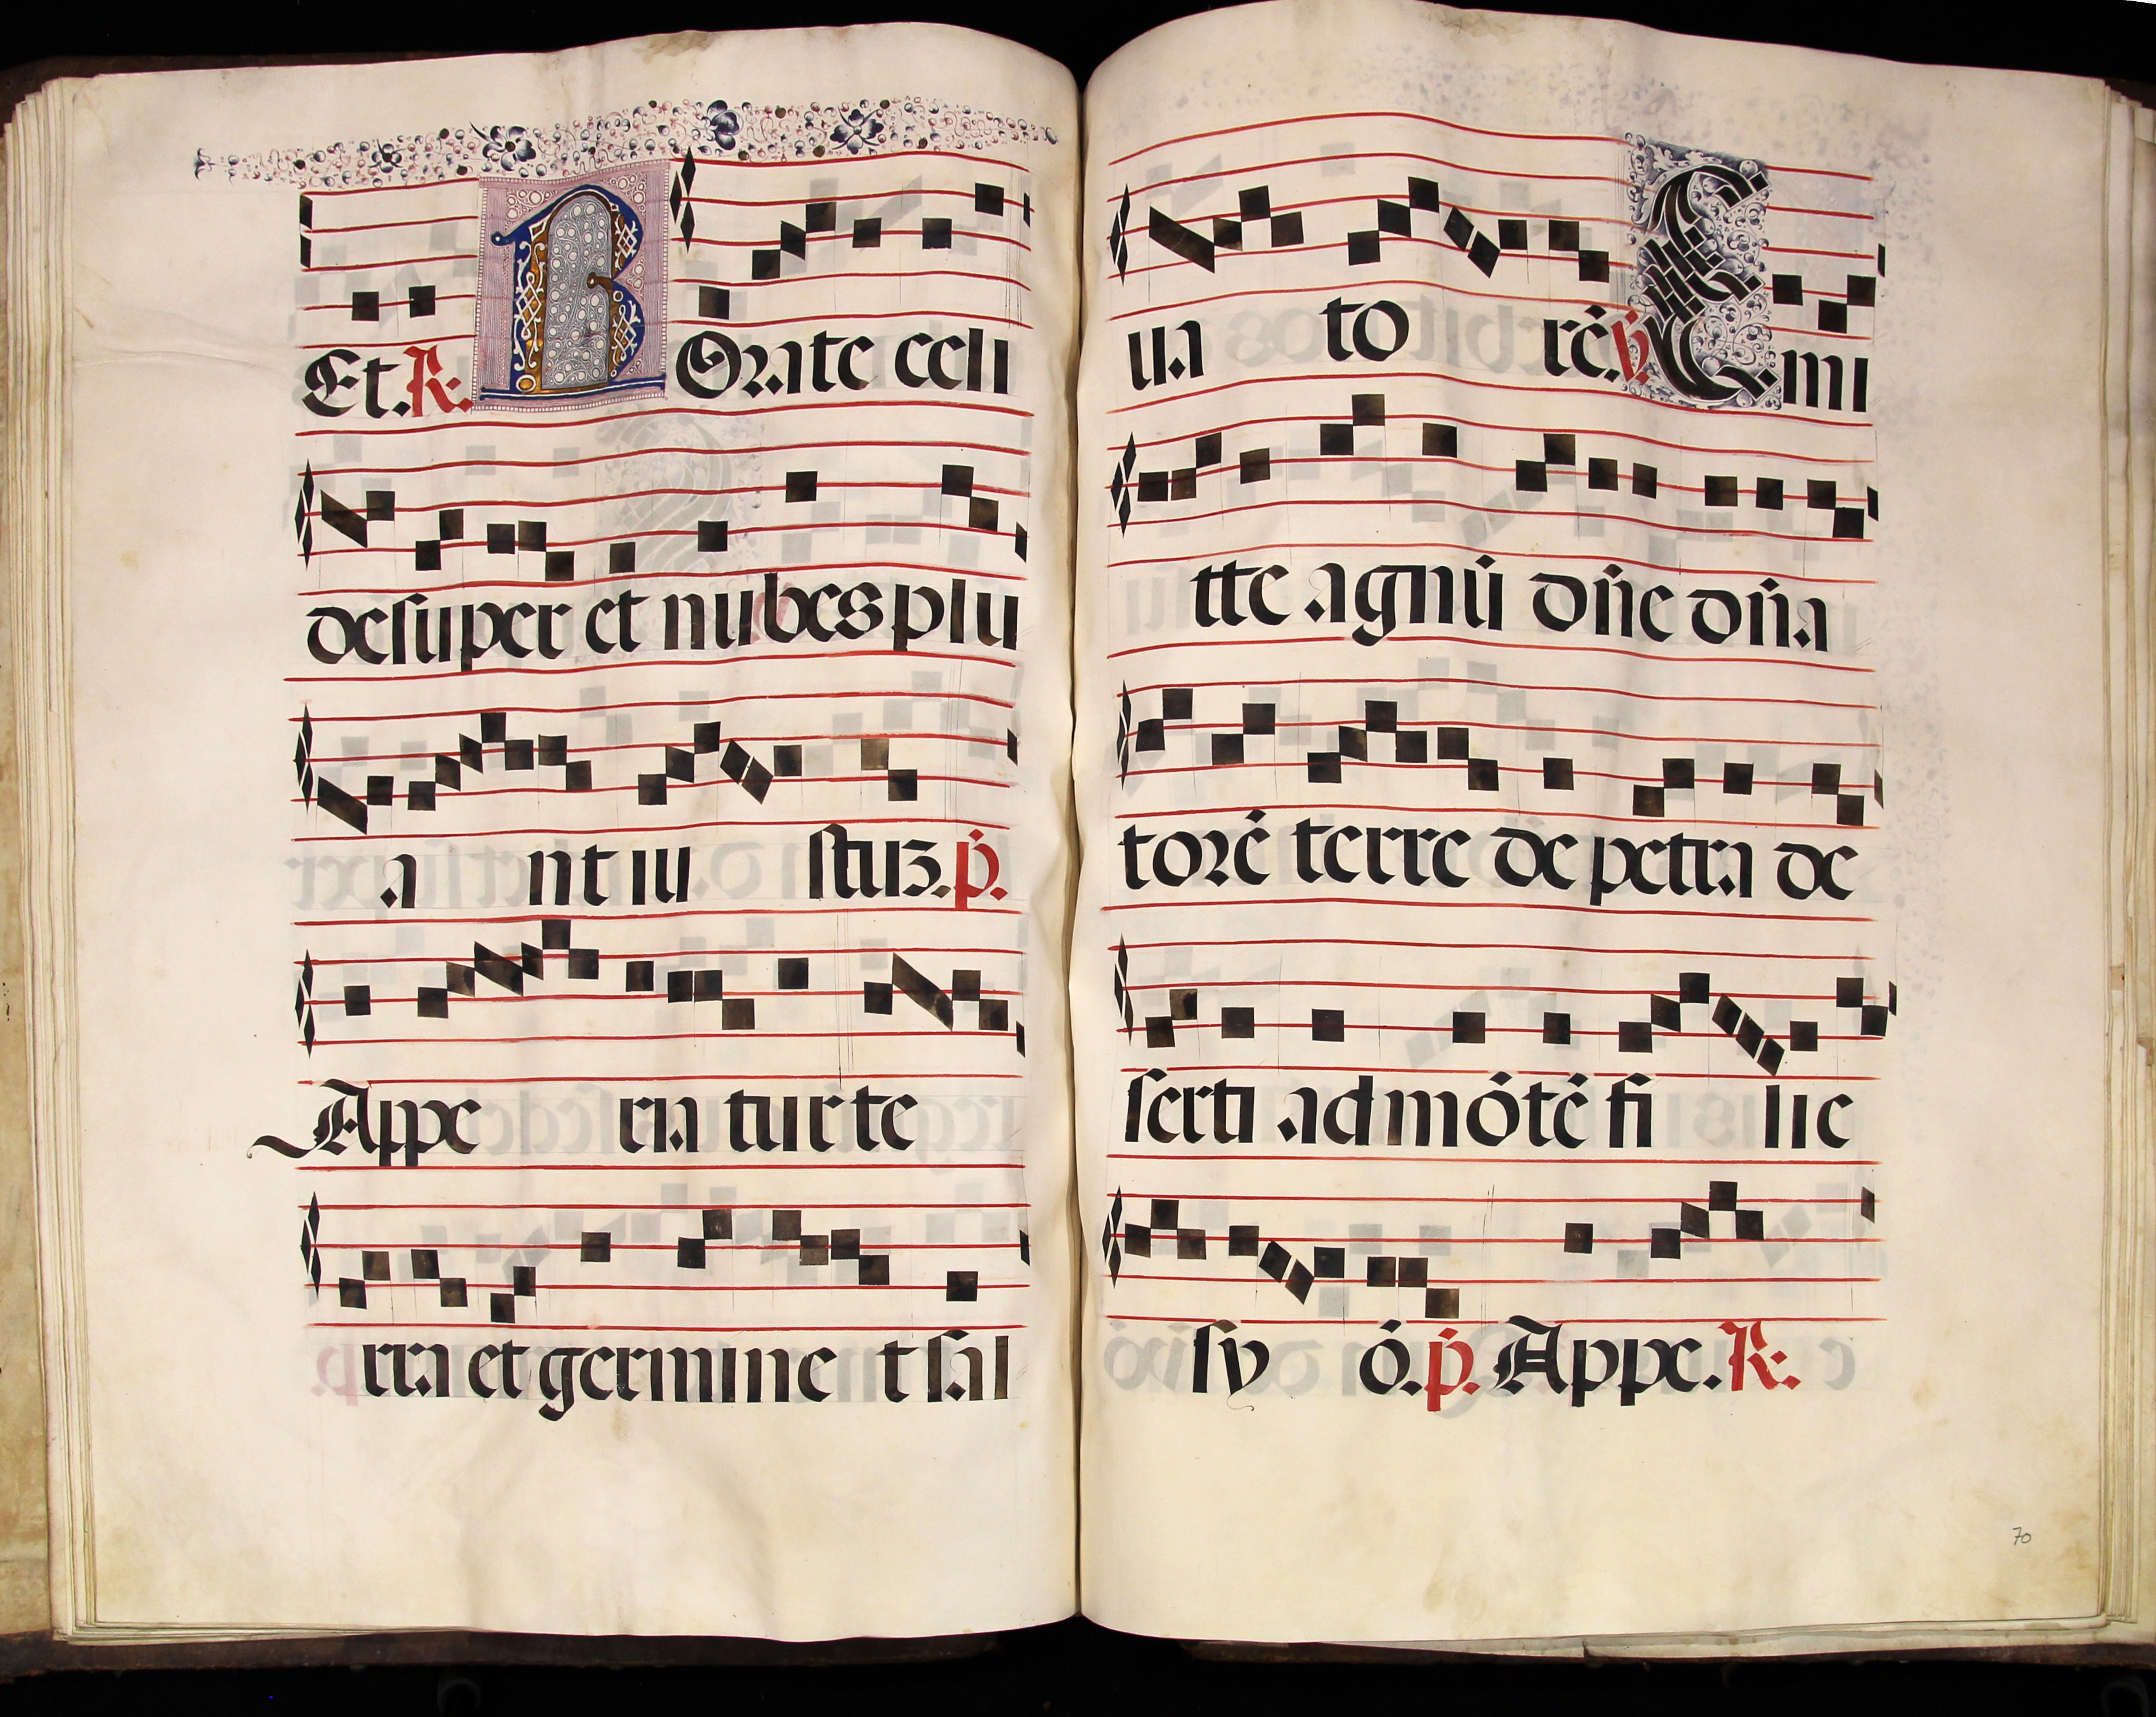 Et. R. ROrate celi
desuper et nubes plu
a nt iu stuz. p̄.
Appe ria tur te
rra et germine t sal
ua to rē. v. Emi
tte agnū dn̄e dn̄a
torē terre de petra de
serti ad mōtē fi lie
sy ō. p̄. Appe. R.
70